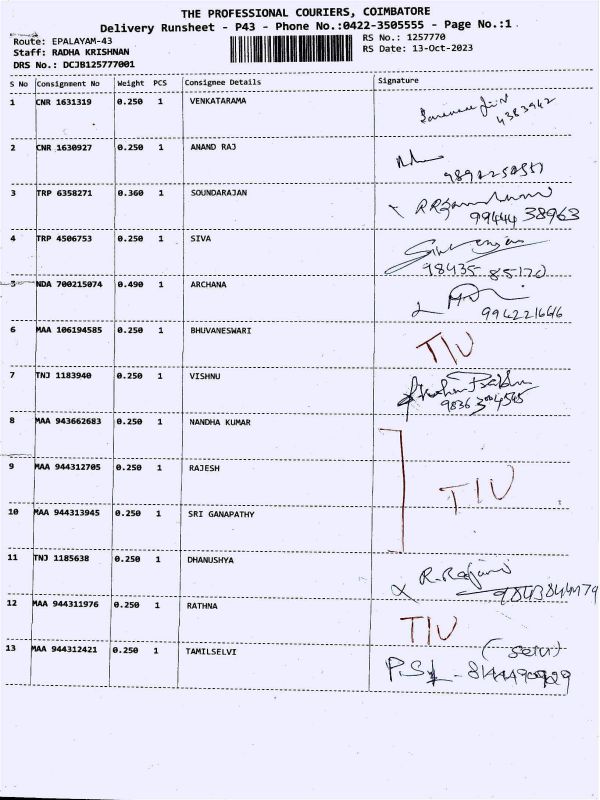 THE PROFESSIONAL COURIERS, COIMBATORE
Delivery Runsheet - P43 - Phone No.:0422-3505555 - Page No.:1
Route: EPALAYAM-43
RS No.: 1257770
Staff: RADHA KRISHNAN
RS Date: 13-Oct-2023
DRS No.: DCJB125777001
S No Consignment No Weight PCS Consignee Details Signature
1 CNR 1631319 0.250 1 VENKATARAMA
4383942
2 CNR 1630927 0.250 1 ANAND RAJ
3 TRP 6358271 0.360 1 SOUNDARAJAN
99444 38963
4 TRP 4506753 0.250 1 SIVA
98435 85170
5 NDA 700215074 0.490 1 ARCHANA
994221666
6 MAA 106194585 0.250 1 BHUVANESWARI T/U
7 TNJ 1183940 0.250 1 VISHNU
8 MAA 943662683 0.250 1 NANDHA KUMAR
9 MAA 944312705 0.250 1 RAJESH T/U
10 MAA 944313945 0.250 1 SRI GANAPATHY
11 TNJ 1185638 0.250 1 DHANUSHYA
12 MAA 944311976 0.250 1 RATHNA T/U
13 MAA 944312421 0.250 1 TAMILSELVI